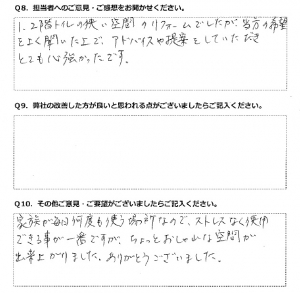 Q8. 担当者へのご意見・ご感想をお聞かせください。
1.2階トイレの狭い空間のリフォームでしたが、当方の希望
をよく聞いた上で、アドバイスや提案をしていただき
とても心強かったです。
Q9. 弊社の改善した方が良いと思われる点がございましたらご記入ください。
Q10. その他ご意見・ご要望がございましたらご記入ください。
家族が毎日何度も使う場所なので、ストレスなく使用
できる事が一番ですが、ちょっとおしゃれな空間が
出来上がりました。ありがとうございました。